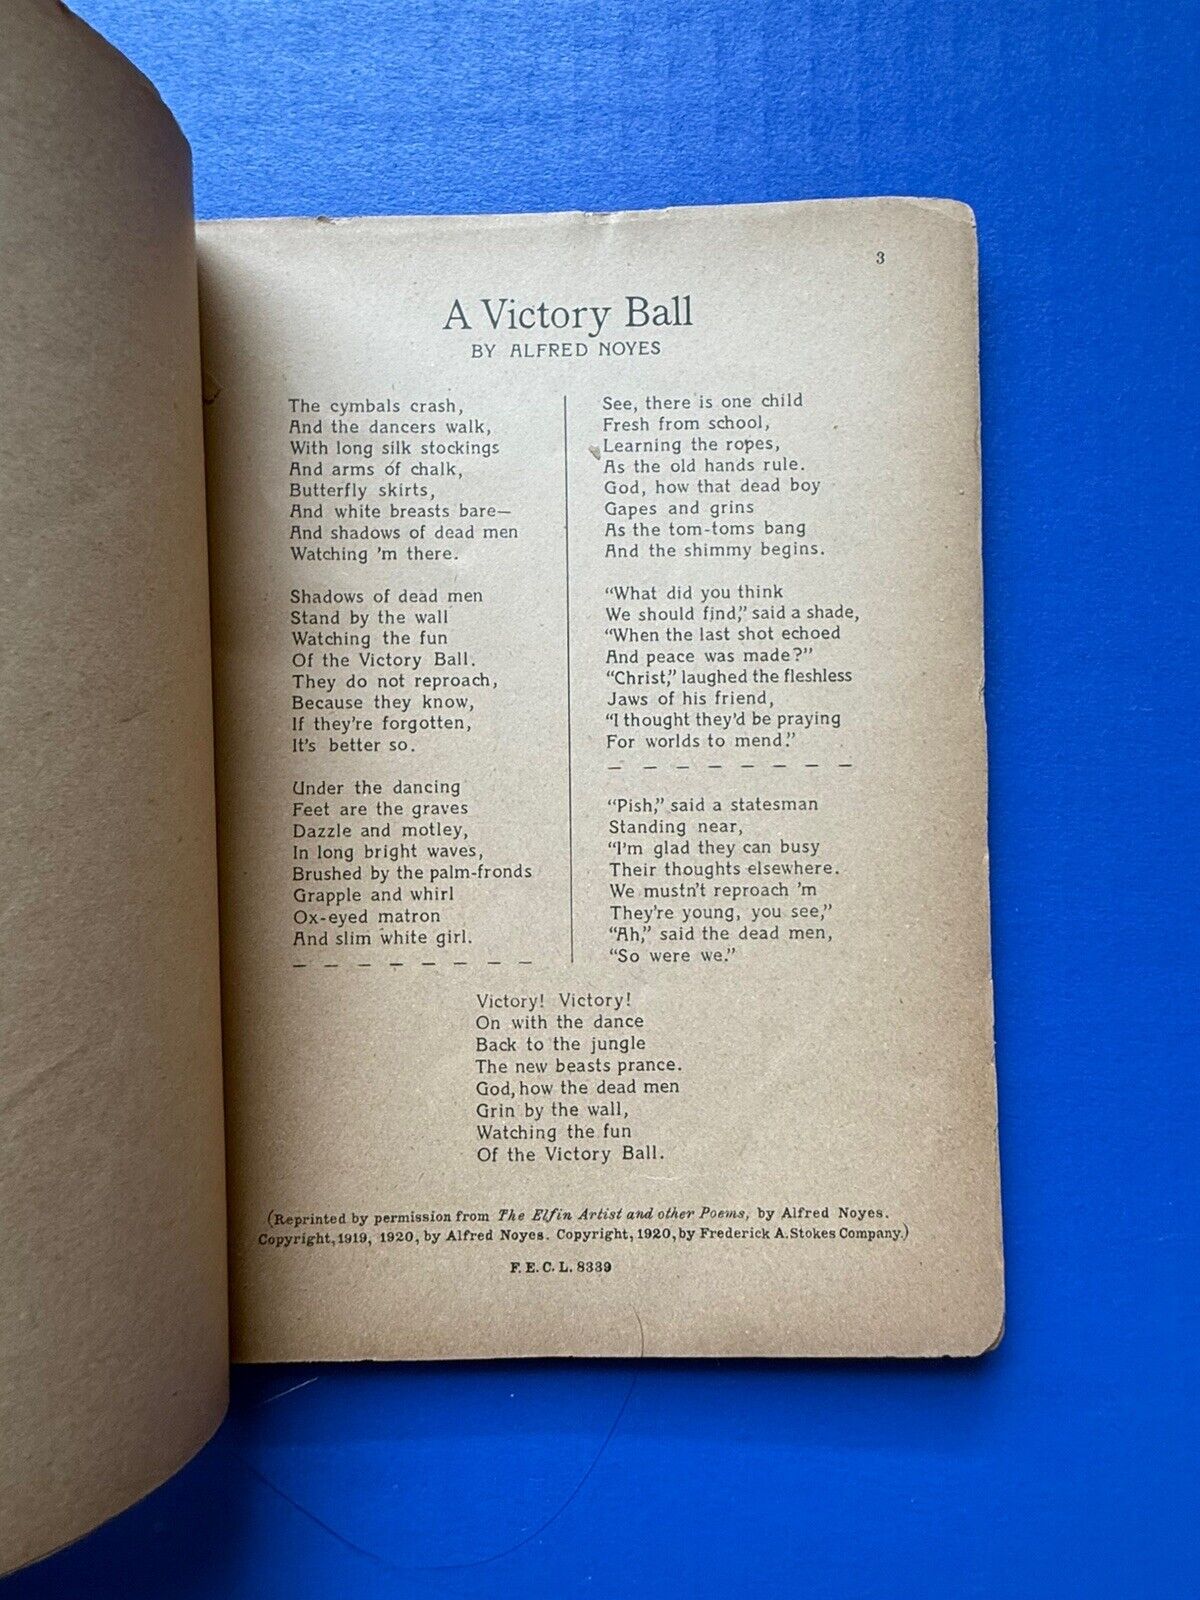 3
A Victory Ball
BY ALFRED NOYES
The cymbals crash,
And the dancers walk,
With long silk stockings
And arms of chalk,
Butterfly skirts,
And white breasts bare—
And shadows of dead men
Watching 'm there.
Shadows of dead men
Stand by the wall
Watching the fun
Of the Victory Ball.
They do not reproach,
Because they know,
If they're forgotten,
It's better so.
Under the dancing
Feet are the graves
Dazzle and motley,
In long bright waves,
Brushed by the palm-fronds
Grapple and whirl
Ox-eyed matron
And slim white girl.
– – – – – – – –
See, there is one child
Fresh from school,
Learning the ropes,
As the old hands rule.
God, how that dead boy
Gapes and grins
As the tom-toms bang
And the shimmy begins.
"What did you think
We should find," said a shade,
"When the last shot echoed
And peace was made?"
"Christ," laughed the fleshless
Jaws of his friend,
"I thought they'd be praying
For worlds to mend."
– – – – – – – –
"Pish," said a statesman
Standing near,
"I'm glad they can busy
Their thoughts elsewhere.
We mustn't reproach 'm
They're young, you see,"
"Ah," said the dead men,
"So were we."
Victory! Victory!
On with the dance
Back to the jungle
The new beasts prance.
God, how the dead men
Grin by the wall,
Watching the fun
Of the Victory Ball.
(Reprinted by permission from The Elfin Artist and other Poems, by Alfred Noyes.
Copyright, 1919, 1920, by Alfred Noyes. Copyright, 1920, by Frederick A. Stokes Company.)
F. E. C. L. 8339